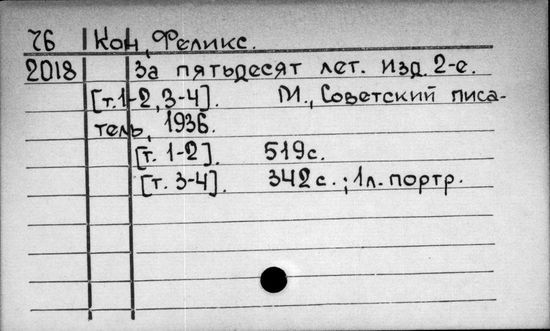 76 Кон, Феликс.
2018 За пятьдесят лет. Изд. 2-е.
[т.1-2, 3-4]. М., Советский писа-
тель, 1936.
[т. 1-2]. 519с.
[т. 3-4]. 342 с.; 1л. портр.